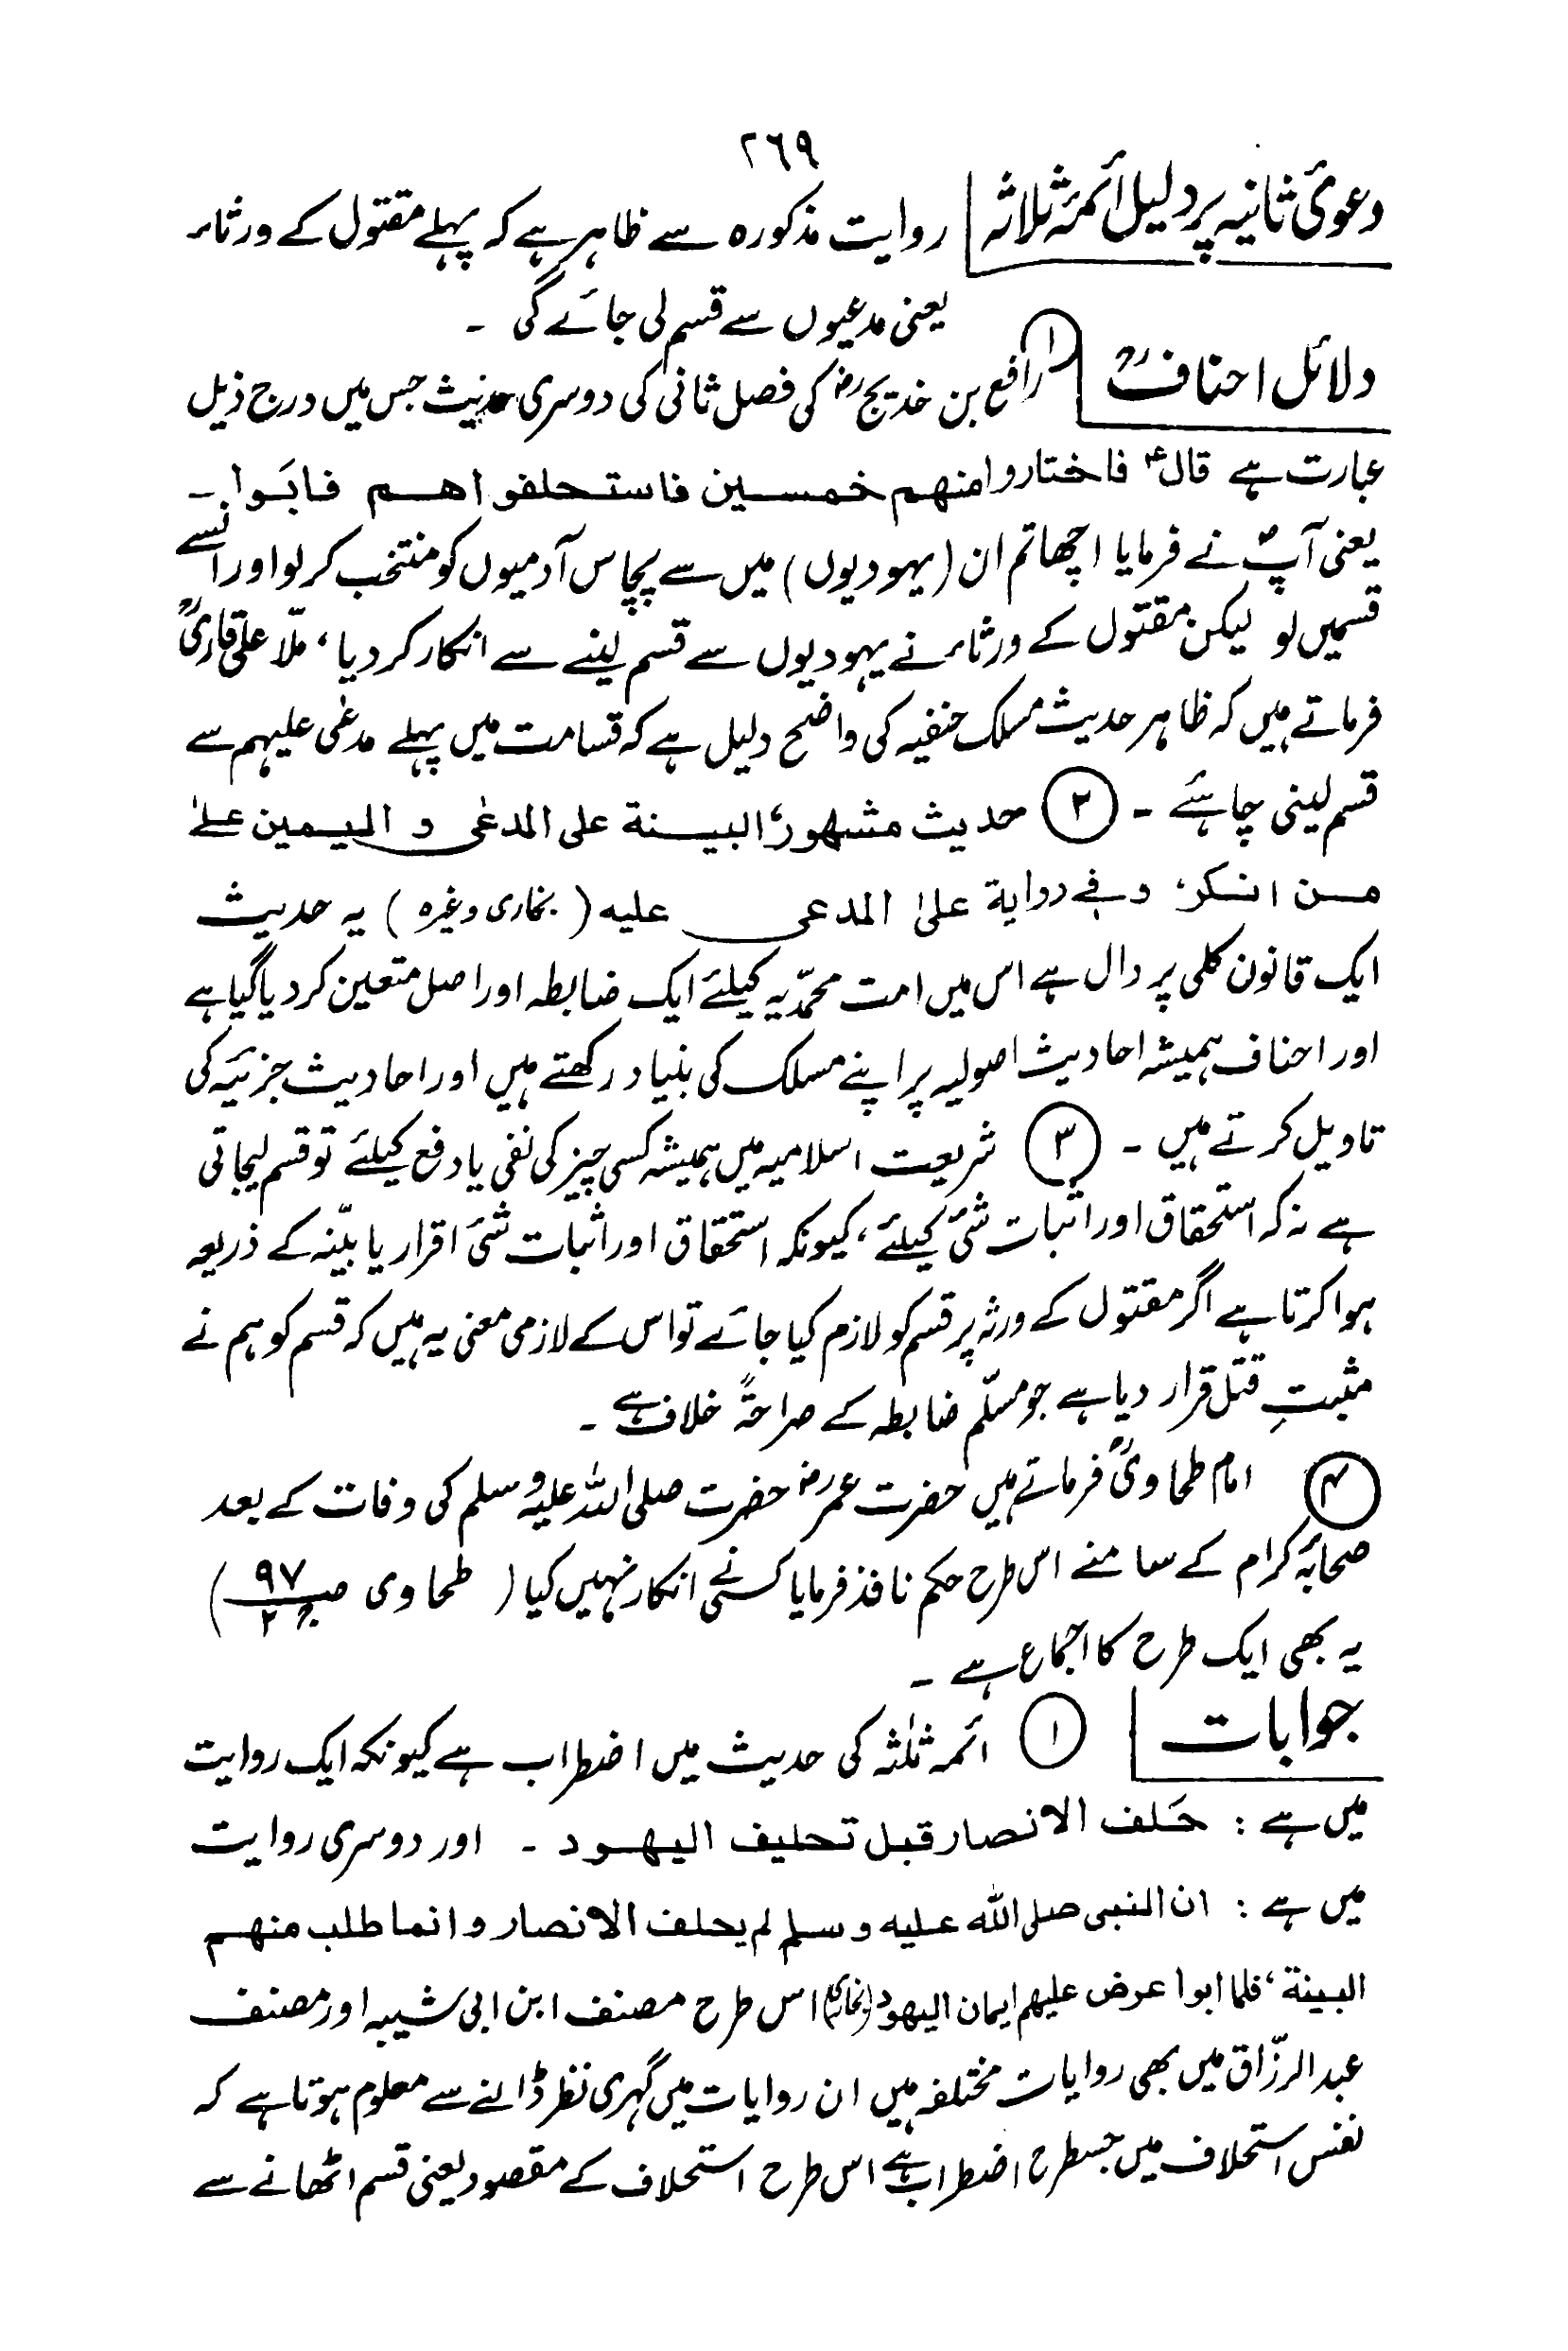 ۲۶۹
دعویٔ ثانیہ پر دلیل ائمۂ ثلاثہ روایت مذکورہ سے ظاہر ہے کہ پہلے مقتول کے ورثاء
یعنی مدعیوں سے قسم لی جائے گی ۔
دلائل احنافؒ ① رافع بن خدیجؓ کی فصل ثانی کی دوسری حدیث جس میں درج ذیل
عبارت ہے قالؑ فاختاروا منهم خمسین فاستحلفوا هم فابَوا ۔
یعنی آپؐ نے فرمایا اچھا تم ان (یہودیوں) میں سے پچاس آدمیوں کو منتخب کرلو اور انسے
قسمیں لو لیکن مقتول کے ورثاء نے یہودیوں سے قسم لینے سے انکار کردیا، ملّا علی قاریؒ
فرماتے ہیں کہ ظاہر حدیث مسلک حنفیہ کی واضح دلیل ہے کہ قسامت میں پہلے مدعٰی علیہم سے
قسم لینی چاہئے ۔ ② حدیث مشہور، البینة علی المدعی و الیمین علےٰ
من انکر، وفی روایة علیٰ المدعی علیه (بخاری وغیرہ) یہ حدیث
ایک قانون کلی پر دال ہے اس میں امت محمدّیہ کیلئے ایک ضابطہ اور اصل متعین کردیا گیا ہے
اور احناف ہمیشہ احادیث اصولیہ پر اپنے مسلک کی بنیاد رکھتے ہیں اور احادیث جزئیہ کی
تاویل کرتے ہیں ۔ ③ شریعت اسلامیہ میں ہمیشہ کسی چیز کی نفی یا دفع کیلئے تو قسم لیجاتی
ہے نہ کہ استحقاق اور اثبات شئ کیلئے، کیونکہ استحقاق اور اثبات شئ اقرار یا بیّنہ کے ذریعہ
ہوا کرتا ہے اگر مقتول کے ورثہ پر قسم کو لازم کیا جائے تو اس کے لازمی معنی یہ ہیں کہ قسم کو ہم نے
مثبتِ قتل قرار دیا ہے جو مسلّم ضابطہ کے صراحۃً خلاف ہے ۔
④ امام طحاویؒ فرماتے ہیں حضرت عمرؓ حضرت صلی اللہ علیہ وسلم کی وفات کے بعد
صحابۂ کرام کے سامنے اس طرح حکم نافذ فرمایا کسی نے انکار نہیں کیا ( طحاوی ص۹۷ ج۲ )
یہ بھی ایک طرح کا اجماع ہے ۔
جوابات ① ائمہ ثلٰثہ کی حدیث میں اضطراب ہے کیونکہ ایک روایت
میں ہے : حَلف الانصار قبل تحلیف الیهود ۔ اور دوسری روایت
میں ہے : ان النبی صلی الله علیه وسلم لم یحلف الانصار وانما طلب منهم
البینة، فلما ابوا عرض علیهم ایمان الیهود (بخاری) اس طرح مصنف ابن ابی شیبہ اور مصنف
عبدالرزّاق میں بھی روایات مختلفہ ہیں ان روایات میں گہری نظر ڈالنے سے معلوم ہوتا ہے کہ
نفس استحلاف میں جسطرح اضطراب ہے اس طرح استحلاف کے مقصود یعنی قسم اٹھانے سے